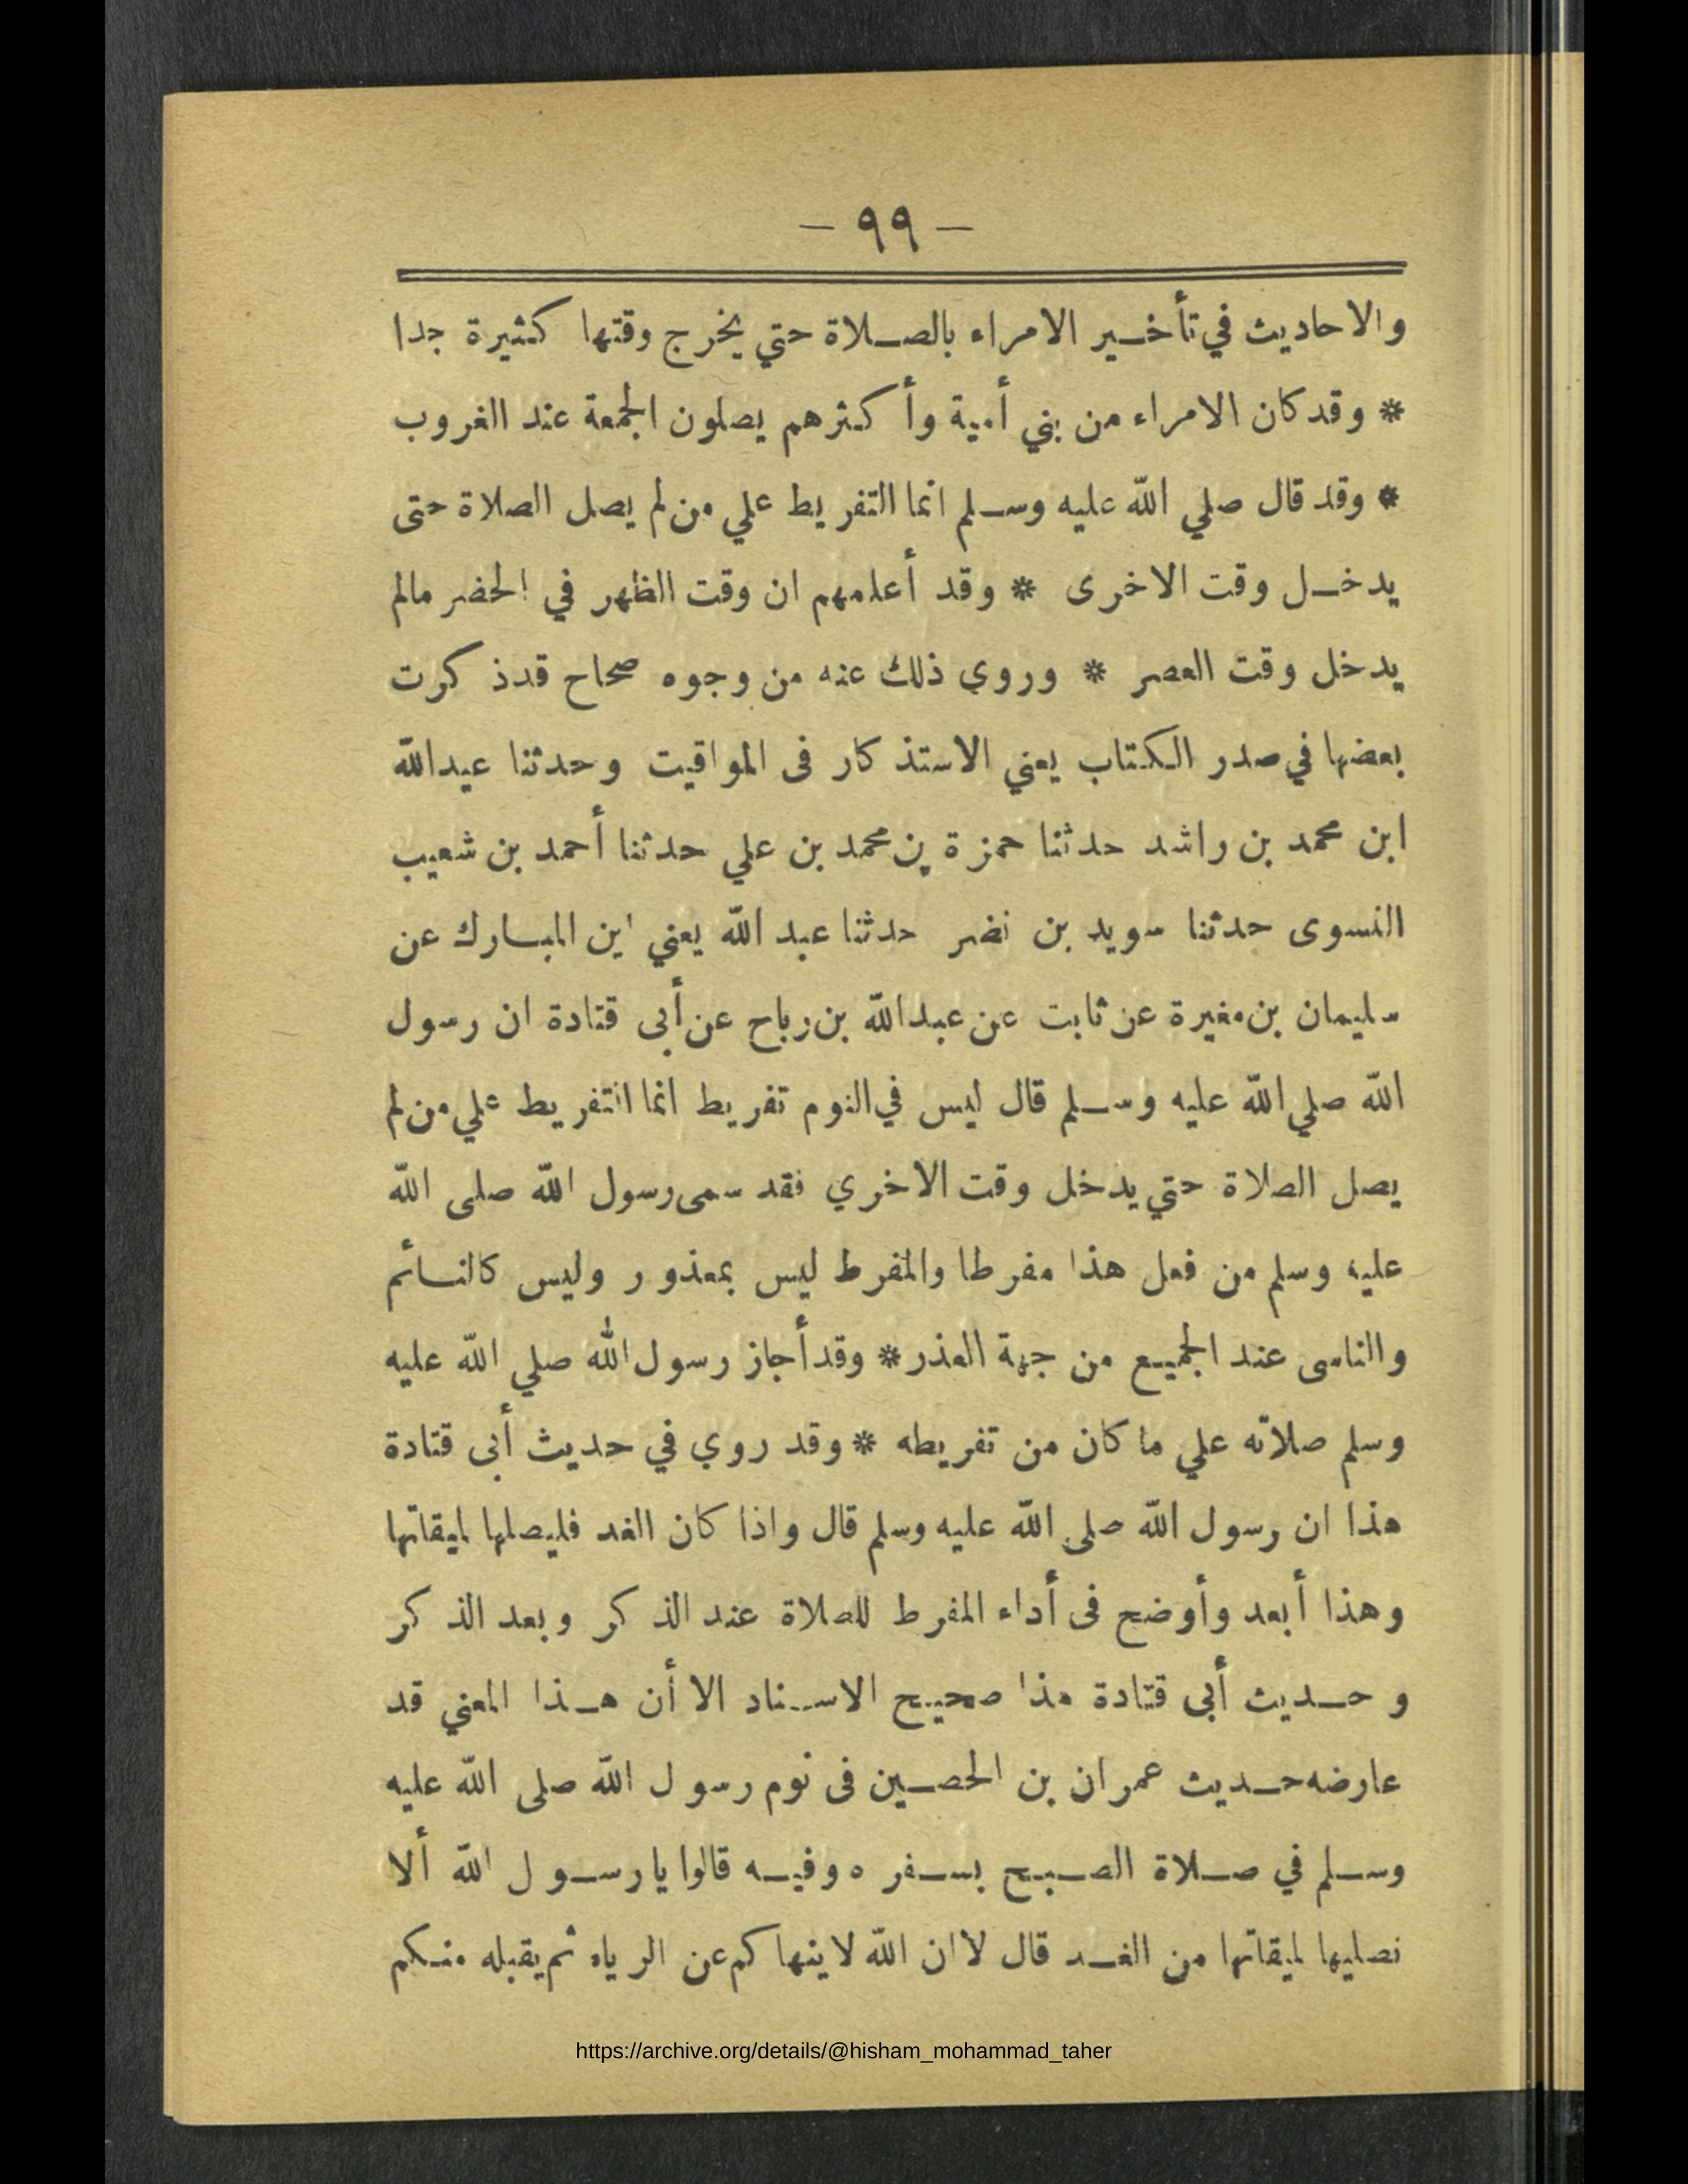 - ٩٩ -
والاحاديث في تأخير الامراء بالصلاة حتي يخرج وقتها كثيرة جدا
* وقد كان الامراء من بني أمية وأكثرهم يصلون الجمعة عند الغروب
* وقد قال صلي الله عليه وسلم انما التفريط علي من لم يصل الصلاة حتى
يدخل وقت الاخرى * وقد أعلمهم ان وقت الظهر في الحضر مالم
يدخل وقت العصر * وروي ذلك عنه من وجوه صحاح قد ذكرت
بعضها في صدر الكتاب يعني الاستذكار فى المواقيت وحدثنا عبدالله
ابن محمد بن راشد حدثنا حمزة بن محمد بن علي حدثنا أحمد بن شعيب
النسوى حدثنا سويد بن نضر حدثنا عبد الله يعني ابن المبارك عن
سليمان بن مغيرة عن ثابت عن عبدالله بن رباح عن أبى قتادة ان رسول
الله صلي الله عليه وسلم قال ليس في النوم تفريط انما التفريط علي من لم
يصل الصلاة حتي يدخل وقت الاخري فقد سمى رسول الله صلى الله
عليه وسلم من فعل هذا مفرطا والمفرط ليس بمعذور وليس كالنائم
والناسى عند الجميع من جهة العذر * وقد أجاز رسول الله صلي الله عليه
وسلم صلاته علي ما كان من تفريطه * وقد روي في حديث أبى قتادة
هذا ان رسول الله صلى الله عليه وسلم قال واذا كان الغد فليصلها لميقاتها
وهذا أبعد وأوضح فى أداء المفرط للصلاة عند الذكر وبعد الذكر
وحديث أبى قتادة هذا صحيح الاسناد الا أن هذا المعني قد
عارضه حديث عمران بن الحصين فى نوم رسول الله صلى الله عليه
وسلم في صلاة الصبح بسفره وفيه قالوا يا رسول الله ألا
نصليها لميقاتها من الغد قال لا ان الله لا ينهاكم عن الرياء ثم يقبله منكم
https://archive.org/details/@hisham_mohammad_taher